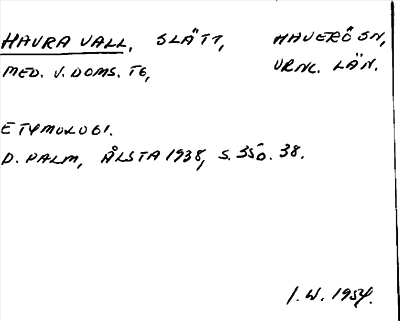 HAVRA VALL, SLÅTT, HAVERÖ SN,
MED. V. DOMS. TG, VRNL. LÄN.
ETYMOLOGI.
D. PALM, ÅLSTA 1938, S. 350. 38.
I. W. 1954.